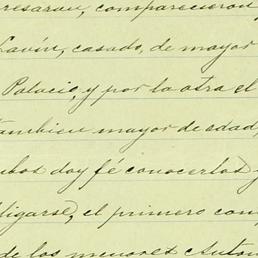 resaron, comparecieron
Lavín, casado, de mayor
Palacio, y por la otra el
también mayor de edad,
ambos doy fé conocerlos y
obligarse, el primero com
de los menores Anton